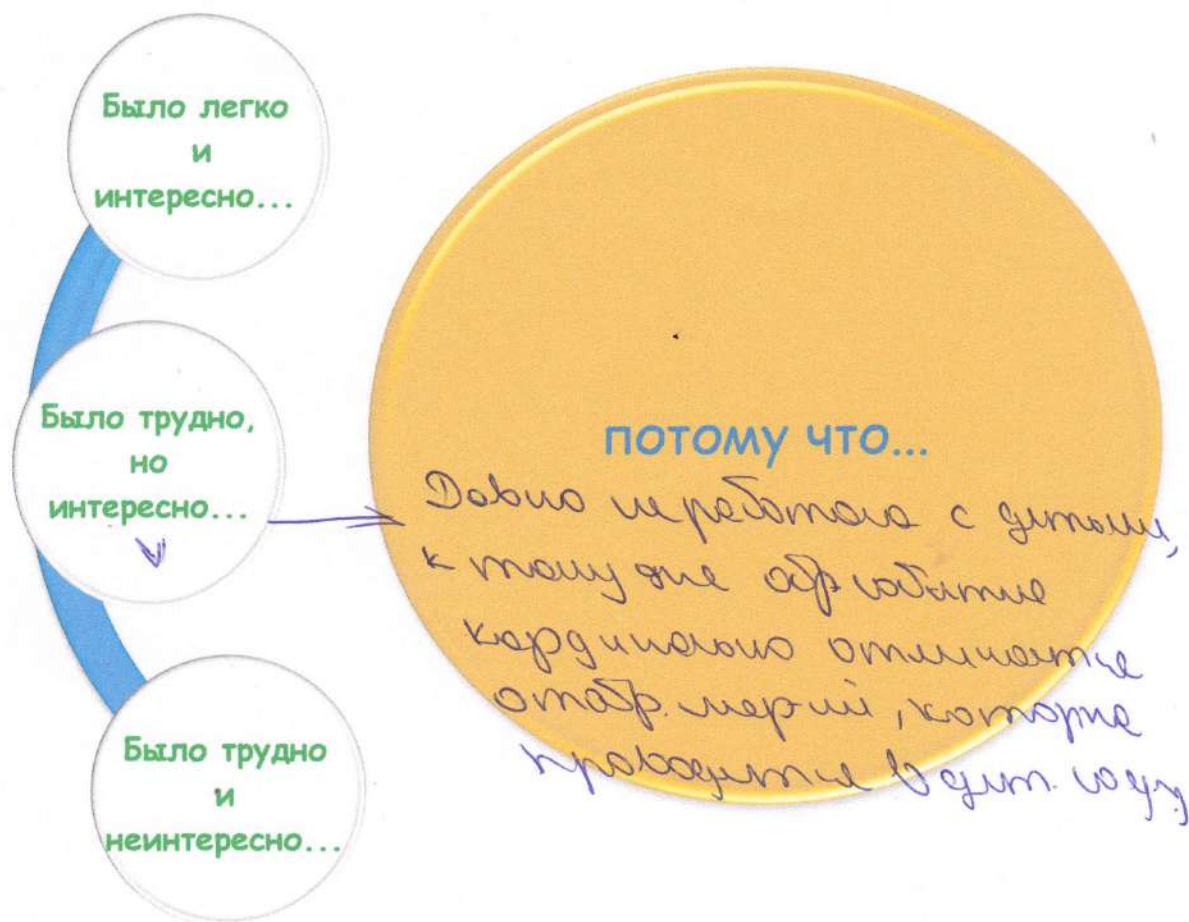 Было легко
и
интересно...
Было трудно,
но
интересно...
Было трудно
и
неинтересно...
потому что...
Давно не работала с детьми,
к тому же обр событие
кардинально отличается
от обр. мер-ий, которые
проводятся в дет. саду